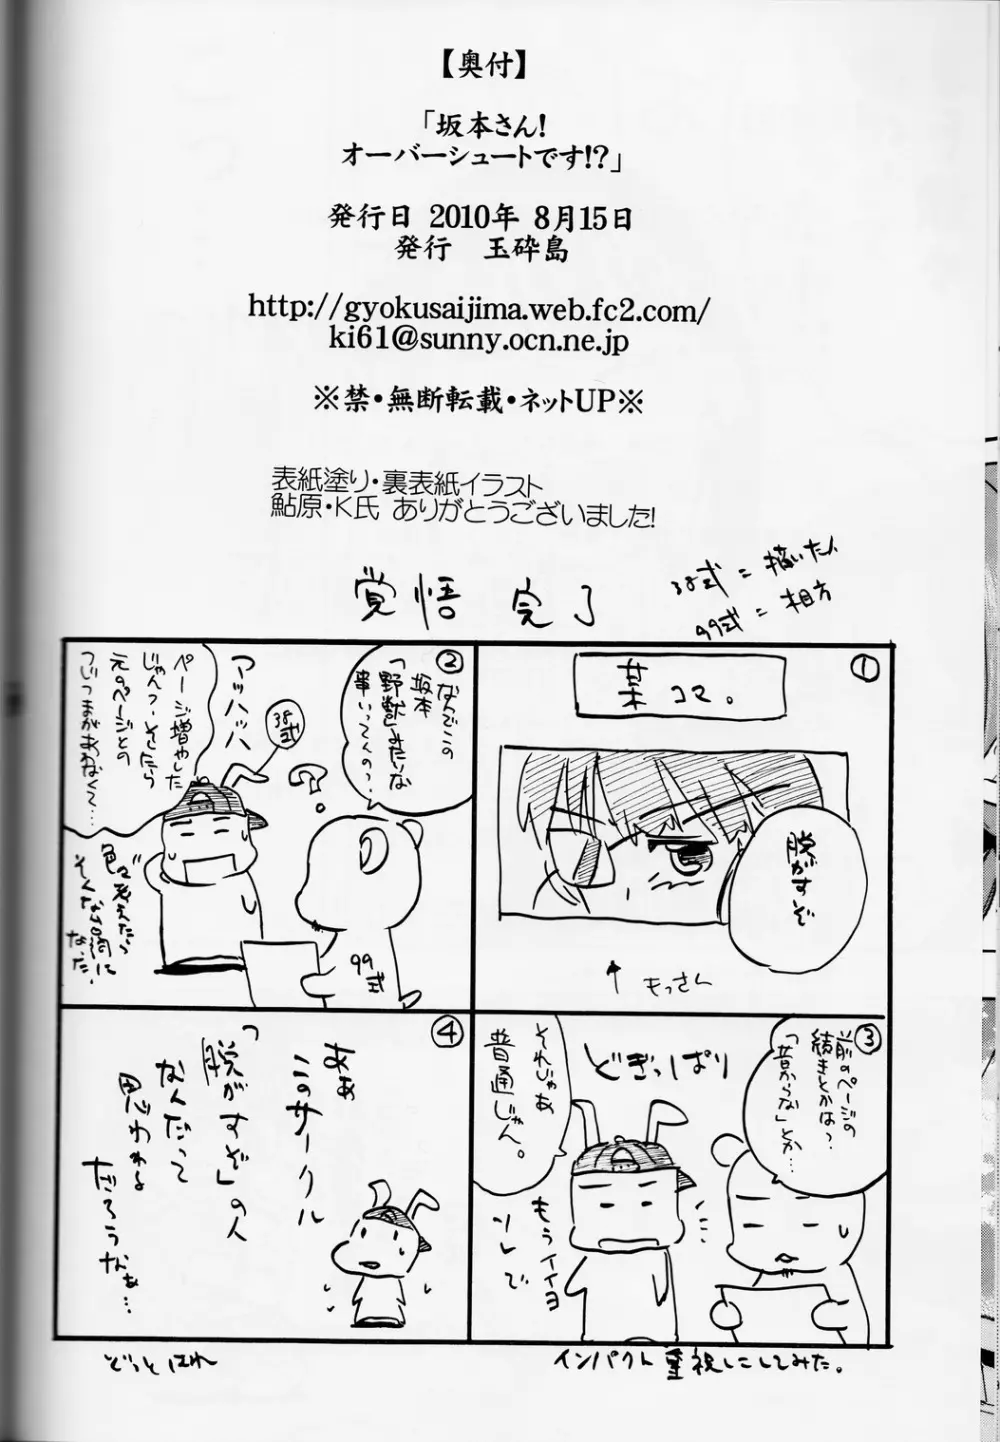 【奥付】
「坂本さん!
オーバーシュートです!?」
発行日 2010年 8月15日
発行 玉砕島
http://gyokusaijima.web.fc2.com/
ki61@sunny.ocn.ne.jp
※禁・無断転載・ネットUP※
表紙塗り・裏表紙イラスト
鮎原・K氏 ありがとうございました!
38式=描いた人
99式=相方
覚悟 完了
①
某コマ。
脱がすぞ
↑もっさん
②
なんでこの
坂本
「野獣」みたいな
事いってんの?
38式
アッハッハ
ページ増やした
じゃんっ、そしたら
元のページとの
つじつまがあわなくて…
色々考えたら
そんな台詞に
なった。
99式
③
前のページの
続きとかは?
「昔からな」とか…
どぎっぱり
それじゃあ
普通じゃん。
もうイイヨ
ソレで
④
ああ
このサークル
「脱がすぞ」の人
なんだって
思われる
だろうなぁ…
インパクト重視にしてみた。
どっとはれ